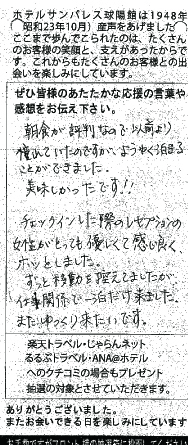 ホテルサンパレス球陽館は1948年
(昭和23年10月)産声をあげました
ここまで歩んでこられたのは、たくさん
のお客様の笑顔と、支えがあったからで
す。これからもたくさんのお客様との出
会いを楽しみにしています。
ぜひ皆様のあたたかな応援の言葉や
感想をお伝え下さい。
朝食が評判なので以前より
憧れていたのですが、ようやく泊まる
ことができました。
美味しかったです!!
チェックインした際のレセプションの
女性がとっても優しくて感じ良く
ホッとしました。
ずっと移動を控えてましたが
仕事関係で一泊だけ来ました。
またゆっくり来たいです。
楽天トラベル・じゃらんネット
るるぶトラベル・ANA@ホテル
へのクチコミの場合もプレゼント
抽選の対象とさせていただきます。
ありがとうございました。
またお会いできる日を楽しみにしています